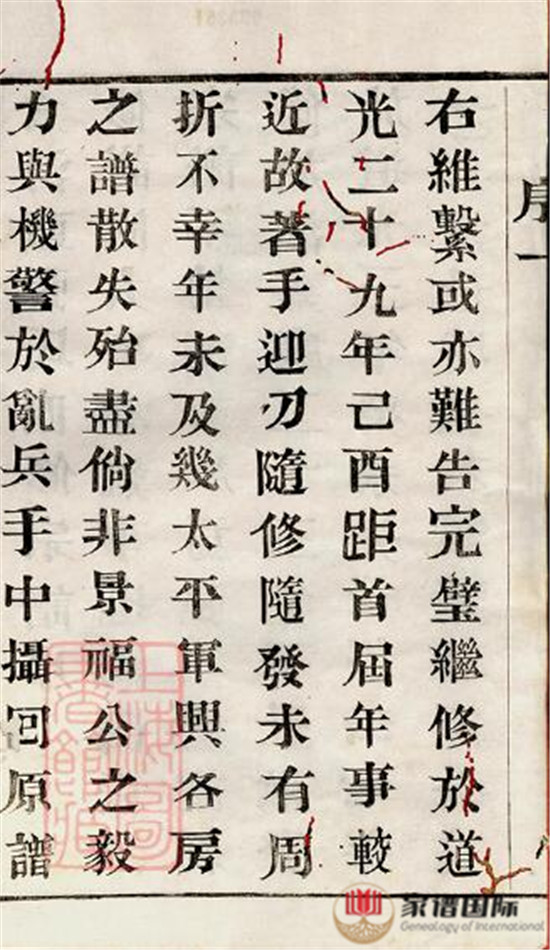 序一
右維繫或亦難告完璧繼修於道
光二十九年己酉距首屆年事較
近故著手迎刃隨修隨發未有周
折不幸年未及幾太平軍興各房
之譜散失殆盡倘非景福公之毅
力與機警於亂兵手中攝回原譜
家谱国际
Genealogy of International